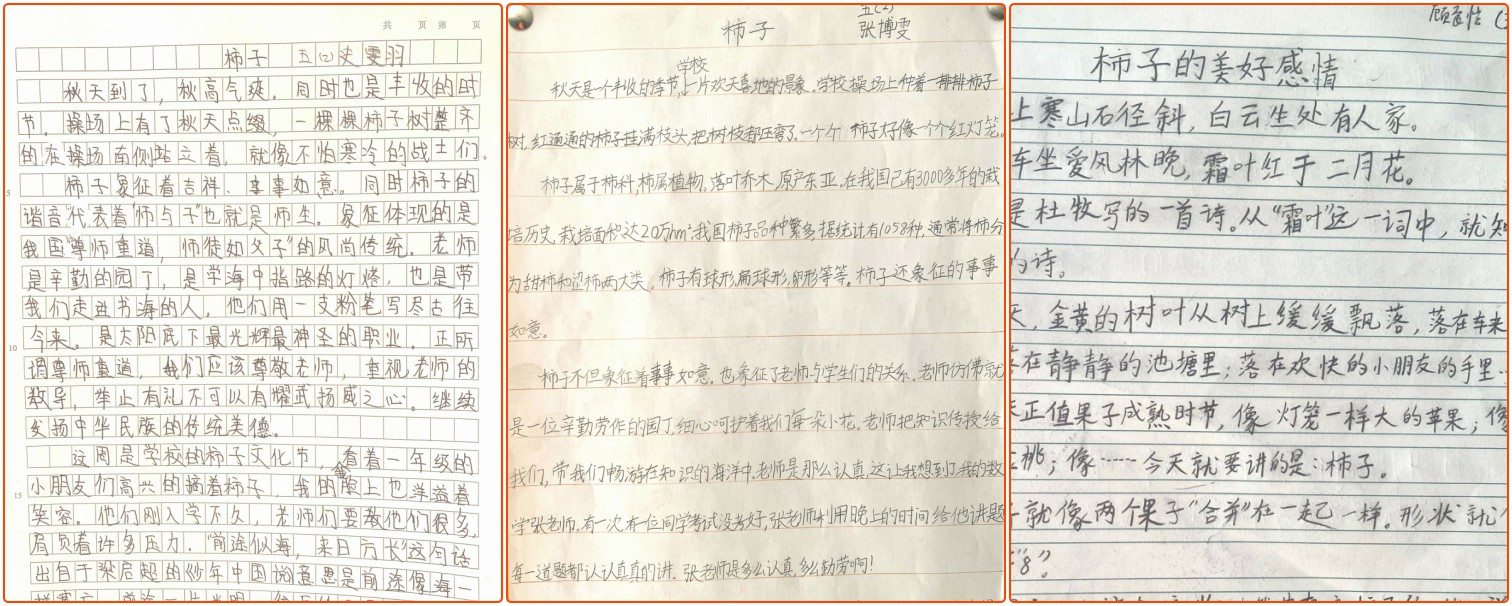 共 页 第 页
柿子 五(2)史雯羽
秋天到了，秋高气爽。同时也是丰收的时
节。操场上有了秋天点缀，一棵棵柿子树整齐
的在操场南侧站立着，就像不怕寒冷的战士们。
柿子象征着吉祥、事事如意。同时柿子的
谐音"代表着"师与子"也就是师生。象征体现的是
我国"尊师重道，师徒如父子"的风尚传统。老师
是辛勤的园丁，是学海中指路的灯塔，也是带
我们走进书海的人。他们用一支粉笔写尽古往
今来。是太阳底下最光辉最神圣的职业。正所
谓尊师重道，我们应该尊敬老师，重视老师的
教导，举止有礼不可以有耀武扬威之心。继续
发扬中华民族的传统美德。
这周是学校的柿子文化节，看着一年级的
小朋友们高兴的摘着柿子，我的脸上也洋溢着
笑容。他们刚入学不久，老师们要教他们很多，
肩负着许多压力。"前途似海，来日方长"这句话
出自于梁启超的《少年中国说》意思是前途像海一
5
10
15
柿子
五(2)
张博雯
学校
秋天是个丰收的季节，上片欢天喜地的景象。学校操场上种着一排排柿子
树，红通通的柿子挂满枝头，把树枝都压弯了，一个个柿子好像一个个红灯笼。
柿子属于柿科柿属植物，落叶乔木，原产东亚，在我国已有3000多年的栽
培历史，栽培面积达20万hm²我国柿子品种繁多，据统计有1058种，通常将柿分
为甜柿和涩柿两大类。柿子有球形，扁球形，卵形等等。柿子还象征的事事
如意。
柿子不但象征着事事如意，也象征了老师与学生们的关系。老师仿佛就
是一位辛勤劳作的园丁，细心呵护着我们每朵小花。老师把知识传授给
我们，带我们畅游在知识的海洋中。老师是那么认真，这让我想到了我的数
学张老师，有一次，有一位同学考试没考好，张老师利用晚上的时间给他讲题
每一道题都认认真真的讲。张老师是多么认真，多么勤劳啊！
柿子的美好感情
上寒山石径斜，白云生处有人家。
车坐爱风林晚，霜叶红于二月花。
是杜牧写的一首诗。从"霜叶"这一词中，就知
的诗。
天，金黄的树叶从树上缓缓飘落，落在车来
落在静静的池塘里；落在欢快的小朋友的手里…
正值果子成熟时节，像灯笼一样大的苹果；像
桃；像……今天就要讲的是：柿子。
子就像两个果子"合并"在一起一样。形状就
"8"。